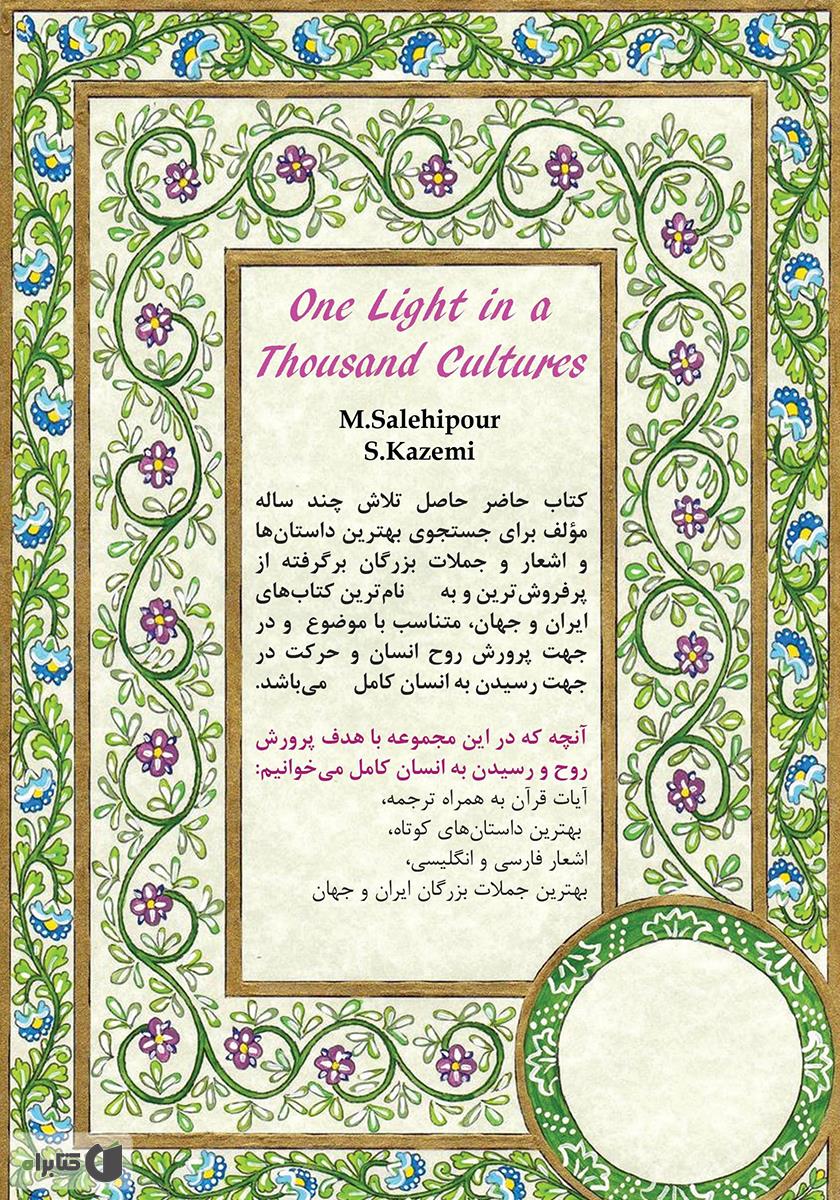 One Light in a
Thousand Cultures
M.Salehipour
S.Kazemi
کتاب حاضر حاصل تلاش چند ساله
مؤلف برای جستجوی بهترین داستان‌ها
و اشعار و جملات بزرگان برگرفته از
پرفروش‌ترین و به نام‌ترین کتاب‌های
ایران و جهان، متناسب با موضوع و در
جهت پرورش روح انسان و حرکت در
جهت رسیدن به انسان کامل می‌باشد.
آنچه که در این مجموعه با هدف پرورش
روح و رسیدن به انسان کامل می‌خوانیم:
آیات قرآن به همراه ترجمه،
بهترین داستان‌های کوتاه،
اشعار فارسی و انگلیسی،
بهترین جملات بزرگان ایران و جهان
کتابراه